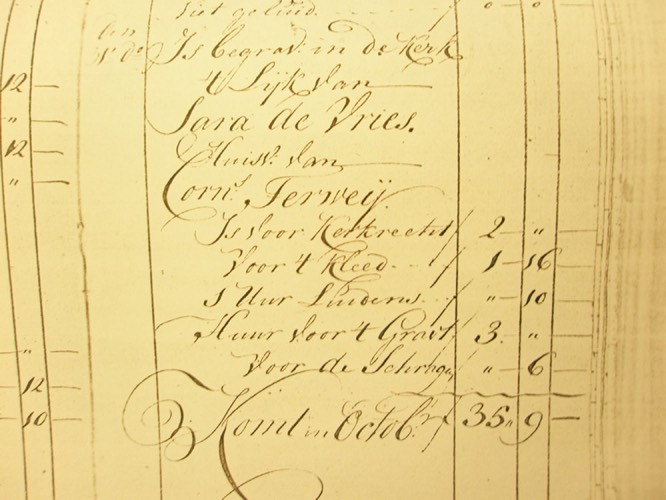 Niet geluid. / " - " -
den
Is begrav: in de Kerk
12 - 't Lijk van
" - Sara de Vries.
12 - Huisv: van
" - Corn:s Terweij
Is voor Kerkrecht / 2 - " -
voor 't Kleed - - / 1 - 16 -
1 Uur Luidens - - / " - 10 -
Huur voor 't Graf / 3. "
" - voor de Schrage / " - 6 -
12 -
10 - Komt in Octob:r / 35 " 9 -